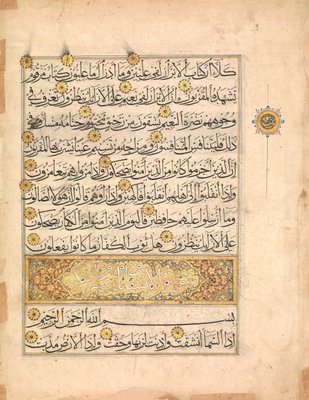 كلا إن كتاب الأبرار لفي عليين وما أدراك ما عليون كتاب مرقوم
يشهده المقربون إن الأبرار لفي نعيم على الأرائك ينظرون تعرف في
وجوههم نضرة النعيم يسقون من رحيق مختوم ختامه مسك وفي
ذلك فليتنافس المتنافسون ومزاجه من تسنيم عينا يشرب بها المقربون
إن الذين أجرموا كانوا من الذين آمنوا يضحكون وإذا مروا بهم يتغامزون
وإذا انقلبوا إلى أهلهم انقلبوا فكهين وإذا رأوهم قالوا إن هؤلاء لضالون
وما أرسلوا عليهم حافظين فاليوم الذين آمنوا من الكفار يضحكون
على الأرائك ينظرون هل ثوب الكفار ما كانوا يفعلون
بسم الله الرحمن الرحيم
إذا السماء انشقت وأذنت لربها وحقت وإذا الأرض مدت